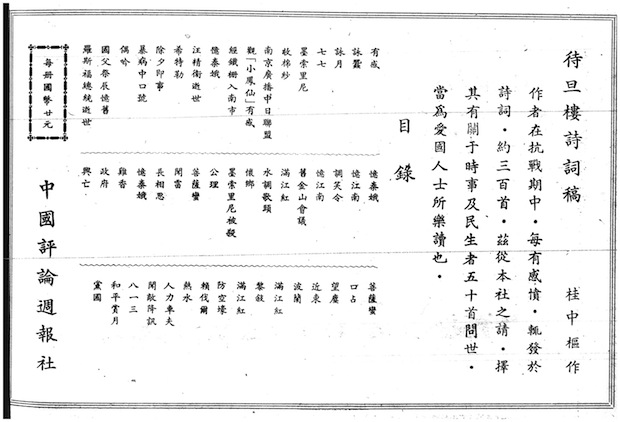 待旦樓詩詞稿　桂中樞作
作者在抗戰期中．每有感憤．輒發於
詩詞．約三百首．茲從本社之請．擇
其有關于時事及民生者五十首問世．
當為愛國人士所樂讀也．
目錄
有感
詠蠶
詠月
七七
墨索里尼
收棉紗
南京廣播中日聯盟
觀「小鳳仙」有感
經鐵柵入南市
憶秦娥
汪精衛逝世
希特勒
除夕即事
暴病中口號
偶吟
國父祭辰憶舊
羅斯福總統逝世
憶秦娥
憶江南
調笑令
憶江南
舊金山會議
滿江紅
水調歌頭
懷鄉
墨索里尼被殺
公理
菩薩蠻
聞雷
長相思
憶秦娥
政府
興亡
菩薩蠻
口占
近東
波蘭
滿江紅
滿江紅
防空壕
賴伐爾
熱水
人力車夫
八一三
聞敵降訊
和平賞月
黨國
每册國幣廿元
中國評論週報社